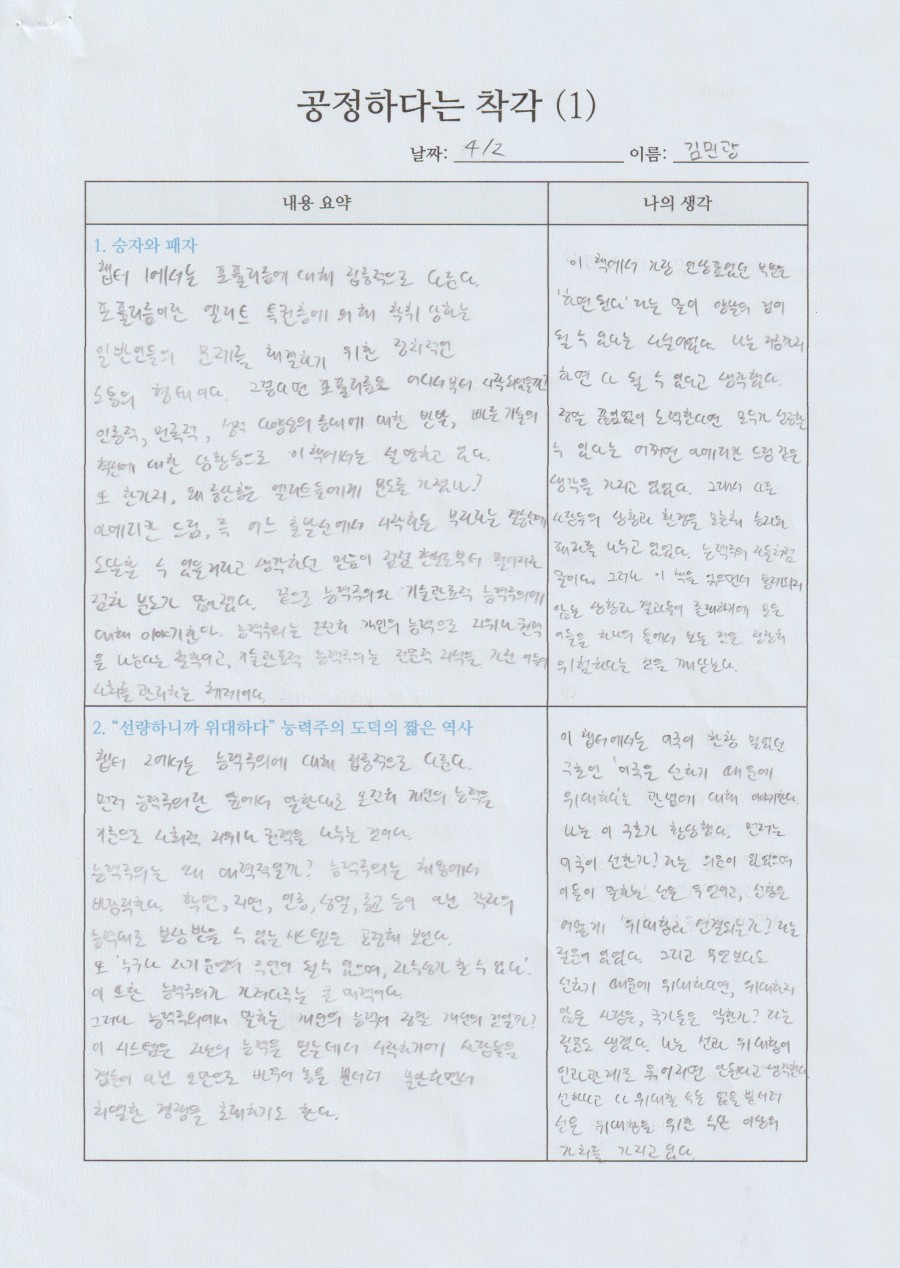 공정하다는 착각 (1)
날짜: 4/2 이름: 김민광
내용 요약
나의 생각
1. 승자와 패자
챕터 1에서는 포퓰리즘에 대해 집중적으로 다룬다.
포퓰리즘이란 엘리트 특권층에 의해 착취 당하는
일반인들의 문제를 해결하기 위한 정치적인
소통의 형태이다. 그렇다면 포퓰리즘은 어디서부터 시작되었을까?
인종적, 민족적, 성적 다양성의 증대에 대한 반발, 빠른 기술의
혁신에 대한 상황등으로 이 책에서는 설명하고 있다.
또 한가지, 왜 중산층은 엘리트들에게 분노를 가졌나?
아메리칸 드림, 즉 어느 출발선에서 시작하든 부자라는 결승선에
도달할 수 있을거라고 생각하던 믿음이 점점 현실로부터 멀어지고
심화 분노가 됐다. 끝으로 능력주의와 기술관료적 능력주의에
대해 이야기한다. 능력주의는 온전히 개인의 능력으로 지위나 권력
을 나눈다는 철학이고, 기술관료적 능력주의는 전문적 지식을 가진 이들이
사회를 관리하는 체제이다.
이 책에서 가장 인상깊었던 부분은
'하면 된다' 라는 말이 양날의 검이
될 수 있다는 사실이었다. 나는 지금까지
하면 다 될 수 있다고 생각했다.
정말 끊임없이 노력한다면 모두가 성공할
수 있다는 어쩌면 아메리칸 드림 같은
생각을 가지고 있었다. 그래서 다른
사람들의 상황과 환경을 소홀히 승자와
패자를 나누고 있었다. 능력주의 자들처럼
말이다. 그러나 이 책을 읽으면서 통제되지
않는 상황과 결과들이 존재하기에 모든
이들을 하나의 틀에서 보는 것은 굉장히
위험하다는 것을 깨달았다.
2. “선량하니까 위대하다” 능력주의 도덕의 짧은 역사
챕터 2에서는 능력주의에 대해 집중적으로 다룬다.
먼저 능력주의란 앞에서 말한대로 온전히 개인의 능력을
기준으로 사회적 지위나 권력을 나누는 것이다.
능력주의는 왜 매력적일까? 능력주의는 채용에서
바람직하다. 학연, 지연, 인종, 성별, 종교 등이 아닌 각자의
능력대로 보상 받을 수 있는 시스템은 공정해 보인다.
또 '누구나 자기 운명의 주인이 될 수 있으며, 자수성가 할 수 있다'.
이 또한 능력주의가 가져다주는 큰 매력이다.
그러나 능력주의에서 말하는 개인의 능력이 정말 개인의 것일까?
이 시스템은 자신의 능력을 믿는데서 시작하기에 사람들을
겸손이 아닌 오만으로 바꾸어 놓을 뿐더러 불안하면서
치열한 경쟁을 초래하기도 한다.
이 챕터에서는 미국이 한창 밀었던
구호인 '미국은 선하기 때문에
위대하다'는 관념에 대해 이야기한다.
나는 이 구호가 황당했다. 먼저는
미국이 선한가? 라는 의문이 있었으며
이들이 말하는 선은 무엇이고, 선함은
어떻게 '위대함과 연결되는가?' 라는
질문이 있었다. 그리고 무엇보다도
선하기 때문에 위대하다면, 위대하지
않은 사람은, 국가들은 악한가? 라는
질문도 생겼다. 나는 선과 위대함이
인과관계로 묶어지면 안된다고 생각한다.
선하다고 다 위대할 수는 없을 뿐더러
선은 위대함을 위한 수단 이상의
가치를 가지고 있다.